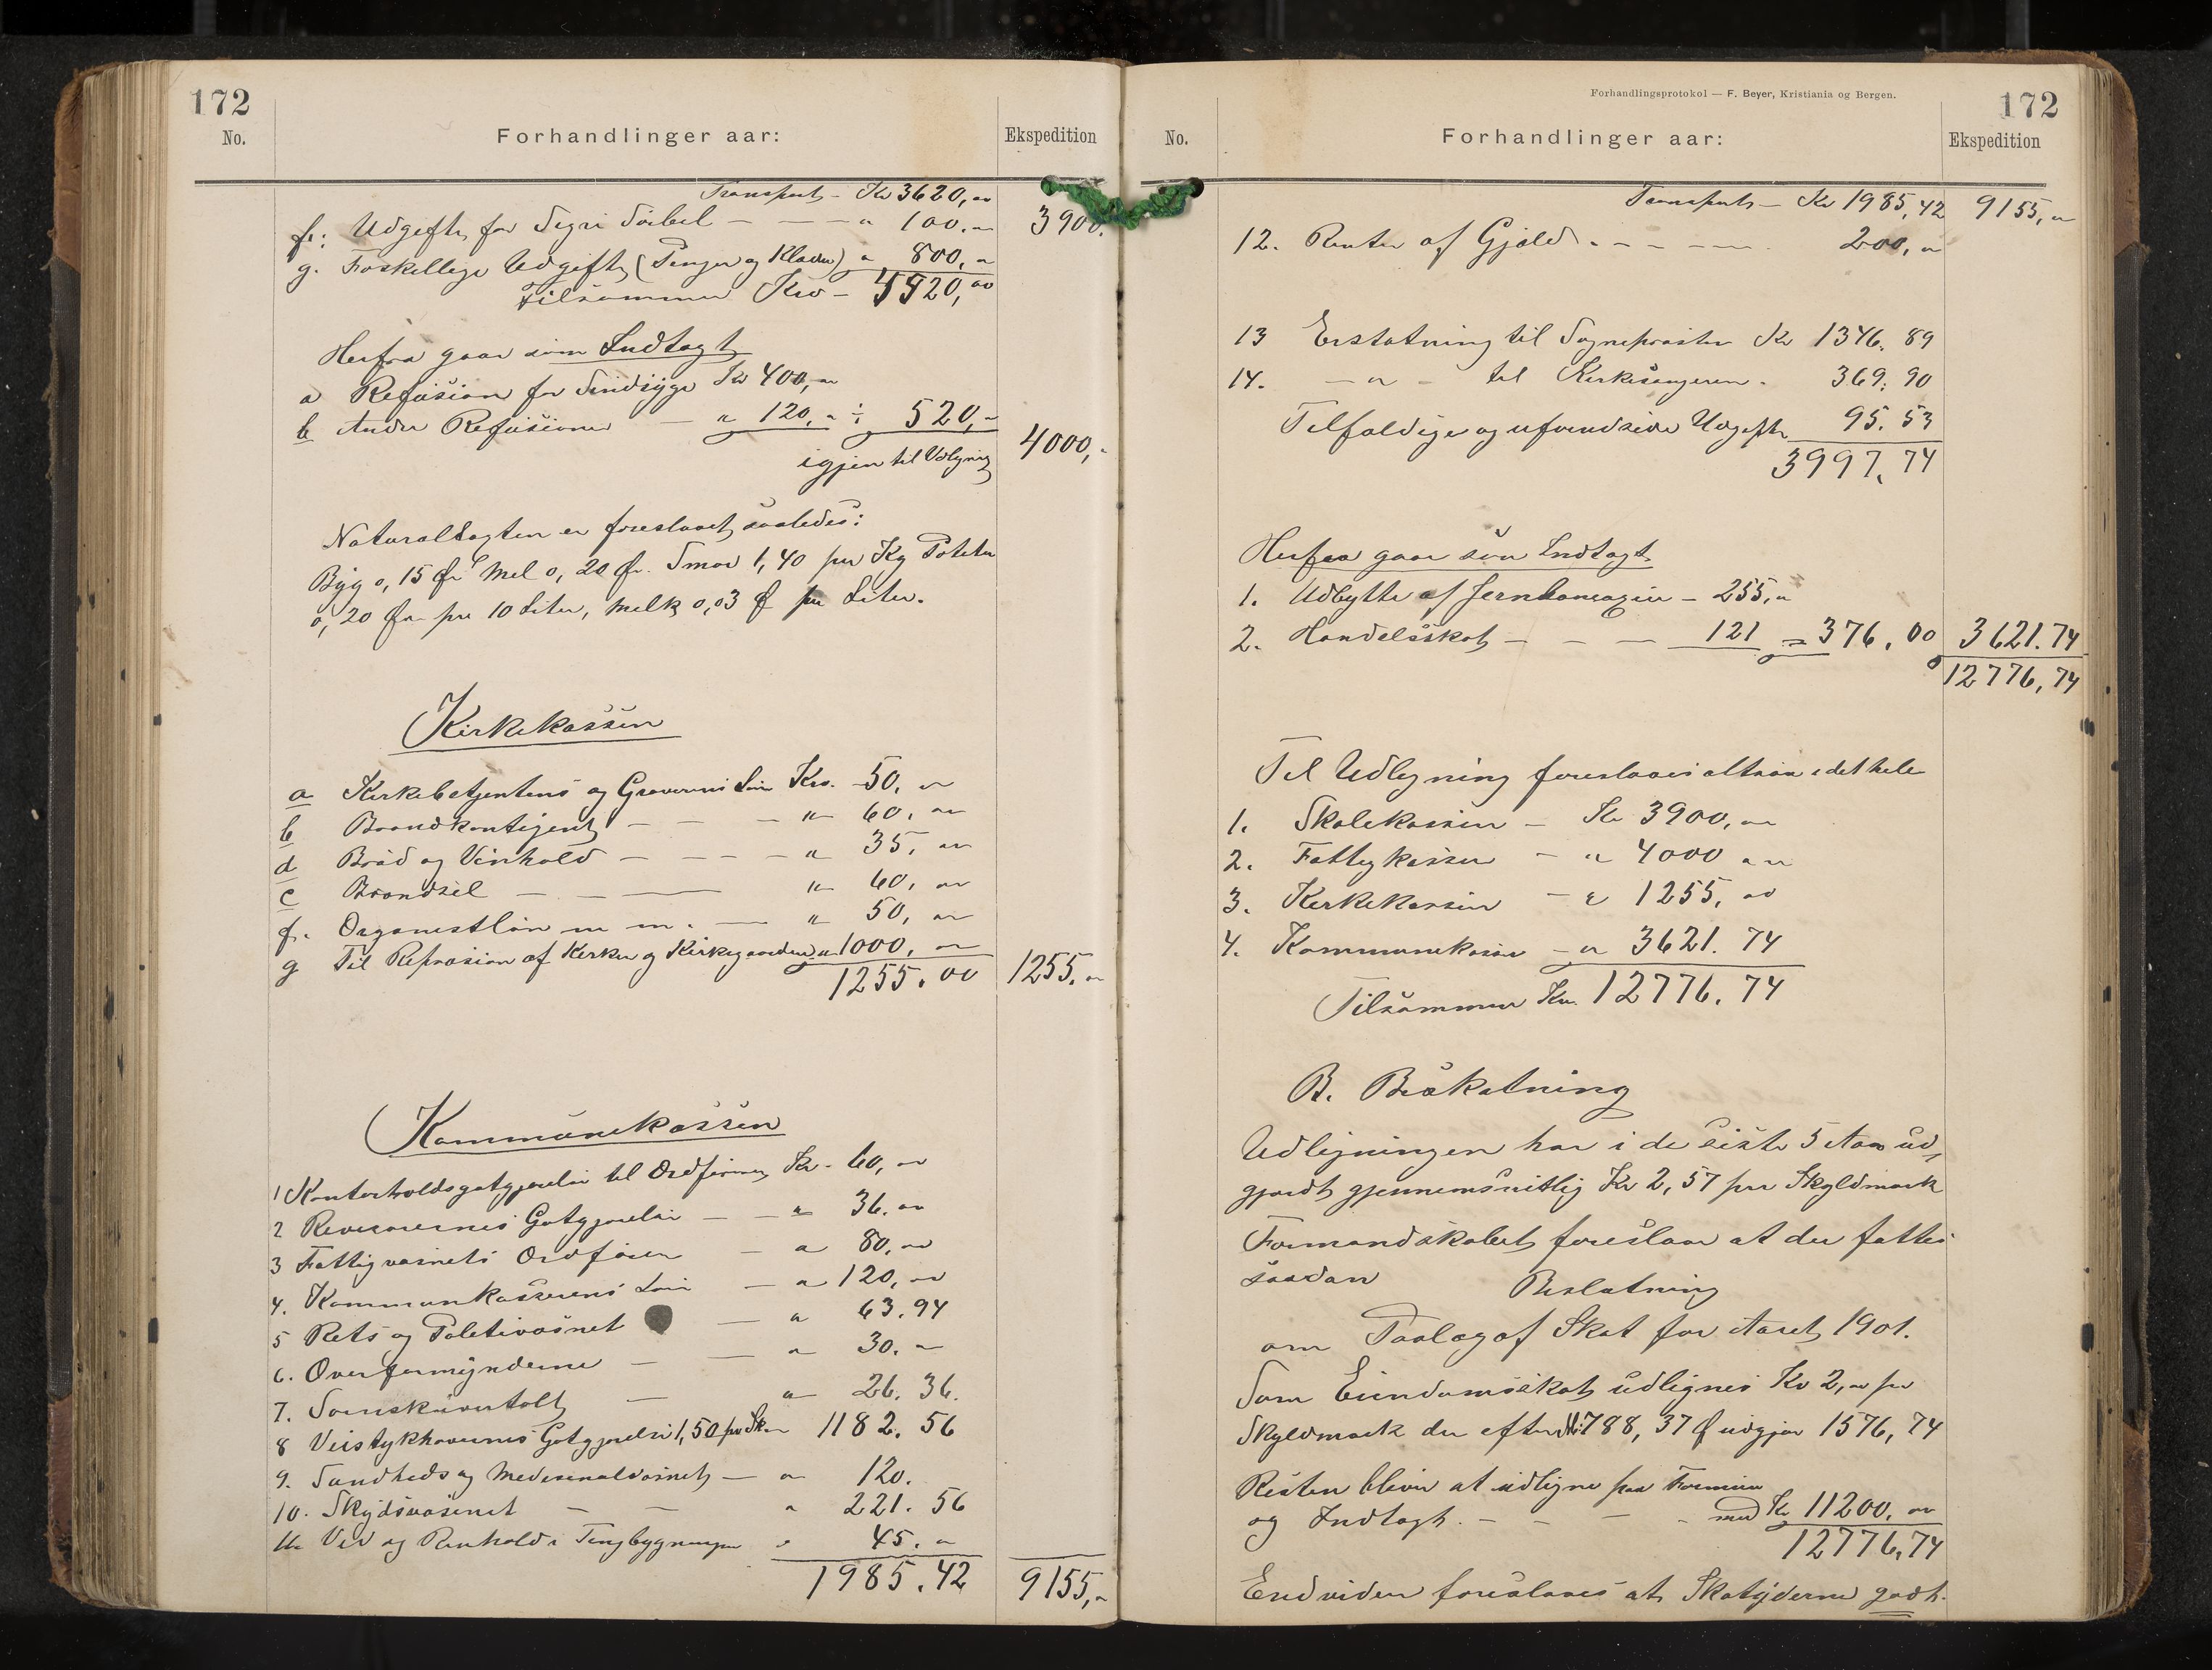 172
No.
Forhandlinger aar:
Ekspedition
Transport – Kr 3620, 00
f: Udgifter for Sigri Sørbel – – – " 100. 00 3900.
g. Forskellige Udgifter (Penger og Klæder) " 800, "
Tilsammen Kro – 4520, 00
Herfra gaar som Indtægt
a Refusion for Sindsyge Kr 400, 00
b Andre Refusioner – " 120, " ÷ 520, "
igjen til Udligning 4000, "
Naturaltagsten er foreslaaet saaledes:
Byg 0, 15 Øre Mel 0, 20 Ør. Smør 1, 40 per Kg Poteter
0, 20 Øre per 10 Liter, Melk 0,03 Ø per Liter.
Kirkekassen
a Kirkebetjentens og Graverens Løn Kro. 50, "
b Brandkontigent – – – " 60, 00
d Brød og Vinhold – – – – " 35, 00
e Brændsel – – – " 60, 00
f. Organistløn m m. – " 50, 00
g Til Reprasion af Kirken og Kirkegaarden " 1000, 00
1255. 00 1255. 00
Kommunekassen
1 Kontorholdsgotgjørelse til Ordføreren Kr. 60, 00
2 Revisorernes Gotgjørelse – – " 36. 00
3 Fattigvæsnets Ordfører – " 80, 00
4. Kommunkasserens Løn – " 120, 00
5 Rets og Politivæsnet – " 63. 94
6. Overformynderne – – " 30. "
7. – " 26. 36.
8 Gotgjørelse 1,50 per Skm 1182. 56
9. Sundheds og Medesinalvæsnet – " 120.
10. Skydsvæsenet – – " 221. 56
11. Ved og Renhold i Tingbygningen " 45. "
1985. 42 9155, "
Forhandlingsprotokol — F. Beyer, Kristiania og Bergen.
172
No.
Forhandlinger aar:
Ekspedition
Transport – Kr 1985, 42 9155, "
12. Renter af Gjæld . – – – – 200, "
13 Erstatning til Sognepresten Kr 1346. 89
14. – " – til Kirkesangeren . 369. 90
Tilfældige og uforudseede Udgifter 95. 53
3997. 74
Herfra gaar som Indtægt
1. Udbytte af Jernbaneaxier – 255, "
2. Handelsskat – – – 121 = 376. 00 3621. 74
12776, 74
Til Udligning foreslaaes altsaa i det hele
1. Skolekassen – Kr 3900, 00
2. Fattigkassen – " 4000 "
3. Kirkekassen – " 1255, 00
4. Kommunekassen – " 3621. 74
Tilsammen Kr. 12776. 74
B. Beskatning
Udligningen har i de siste 5 Aar ud,
gjordt gjennemsnitlig Kr 2, 57 per Skyldmark
Formandskabet foreslaar at der fattes
saadan Beslutning
om Paalæg af Skat for Aaret 1901.
Som Eiendomsskat udlignes Kr 2, 00 per
Skyldmark der efter M: 788, 37 Ø udgjør 1576, 74
Resten bliver at udligne paa Formue
og Indtægt. – – – – med Kr 11200, 00
12776, 74
Endvidere foreslaaes at Skatyderne godt-